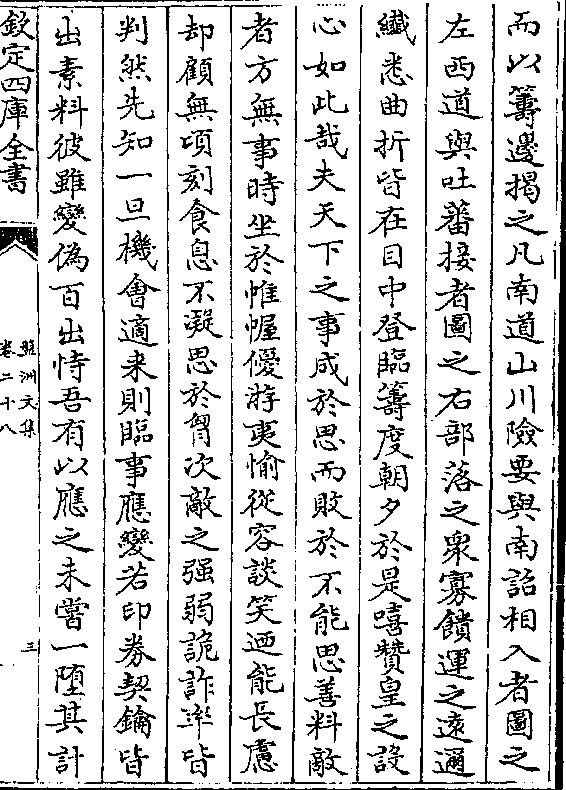 而以籌邊揭之凡南道山川險要與南詔相入者圖之
左西道與吐蕃接者圖之右部落之衆寡饋運之遠邇
纎悉曲折皆在目中登臨籌度朝夕於是嘻贊皇之設
心如此哉夫天下之事成於思而敗於不能思善料敵
者方無事時坐於帷幄優游夷愉從容談笑迺能長慮
却顧無頃刻食息不凝思於胷次敵之强弱詭詐率皆
判然先知一旦機會適来則臨事應變若印券契鑰皆
出素料彼雖變偽百出恃吾有以應之未嘗一堕其計
欽定四庫全書
卷二十八
洲文集
三